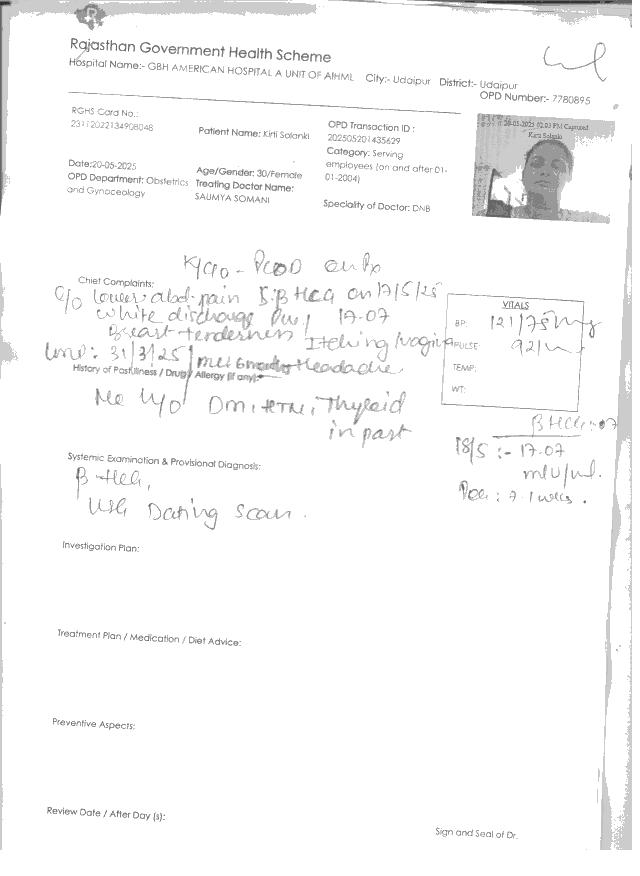 Rajasthan Government Health Scheme
Hospital Name:- GBH AMERICAN HOSPITAL A UNIT OF AIHML City:- Udaipur District:- Udaipur
OPD Number:- 7780895
RGHS Card No.:
23112022134908048
Patient Name: Kirti Solanki
OPD Transaction ID :
202505201435629
Category: Serving
employees (on and after 01-
01-2004)
Date:20-05-2025
OPD Department: Obstetrics
and Gynaecology
Age/Gender: 30/Female
Treating Doctor Name:
SAUMYA SOMANI
Speciality of Doctor: DNB
20-05-2025 02:03 PM Captured
Kirti Solanki
K/c/o - PCOD on Rx
Chief Complaints:
C/o lower abd. pain S. β HCG on 17/5/25
white discharge 17.07
Breast tenderness Itching
LMP: 31/3/25 Headache.
History of Past Illness / Drug / Allergy (if any):-
No H/o DM, HTN, Thyroid
in past
VITALS
BP: 121/75
PULSE: 92/m
TEMP:
WT:
β HCG:
18/5 :- 17.07
mIU/ml.
POG : 7.1 wks.
Systemic Examination & Provisional Diagnosis:
β HCG,
USG Dating Scan.
Investigation Plan:
Treatment Plan / Medication / Diet Advice:
Preventive Aspects:
Review Date / After Day (s):
Sign and Seal of Dr.